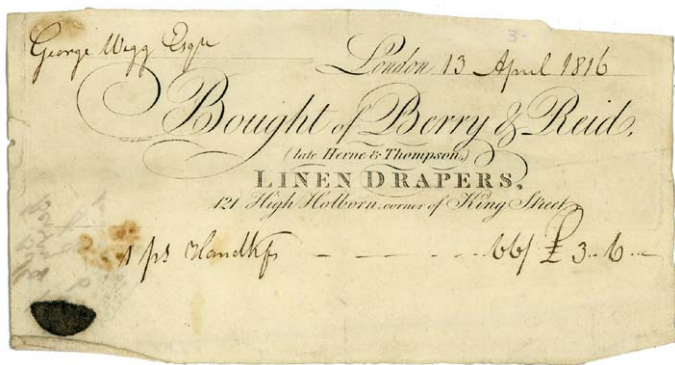 George Wigg Esqr
London 13 April 1816
Bought of Berry & Reid,
(late Herne & Thompson,)
LINEN DRAPERS,
121 High Holborn, corner of King Street
1 ps Handkfs - - - - 66/ £ 3 .. 6 ..